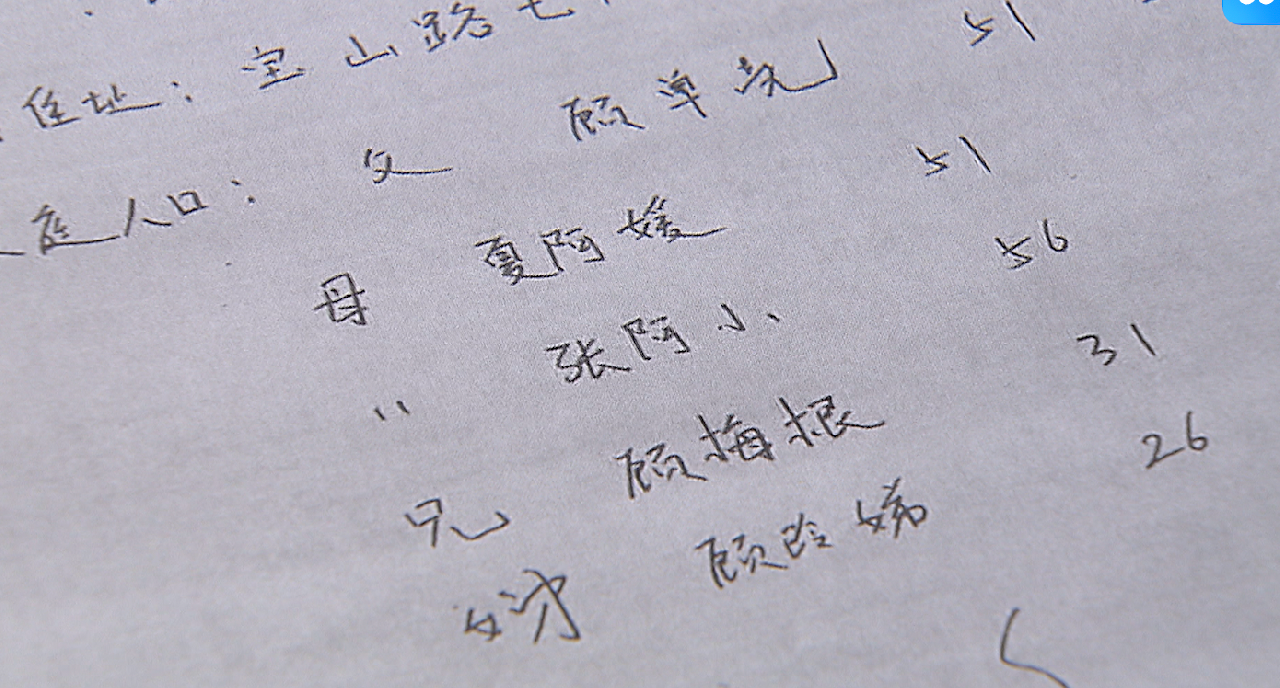 住址：宝山路七
庭人口：父 顾单 51
母 夏阿媛 51
〃 张阿小 56
兄 顾梅根 31
顾玲娣 26